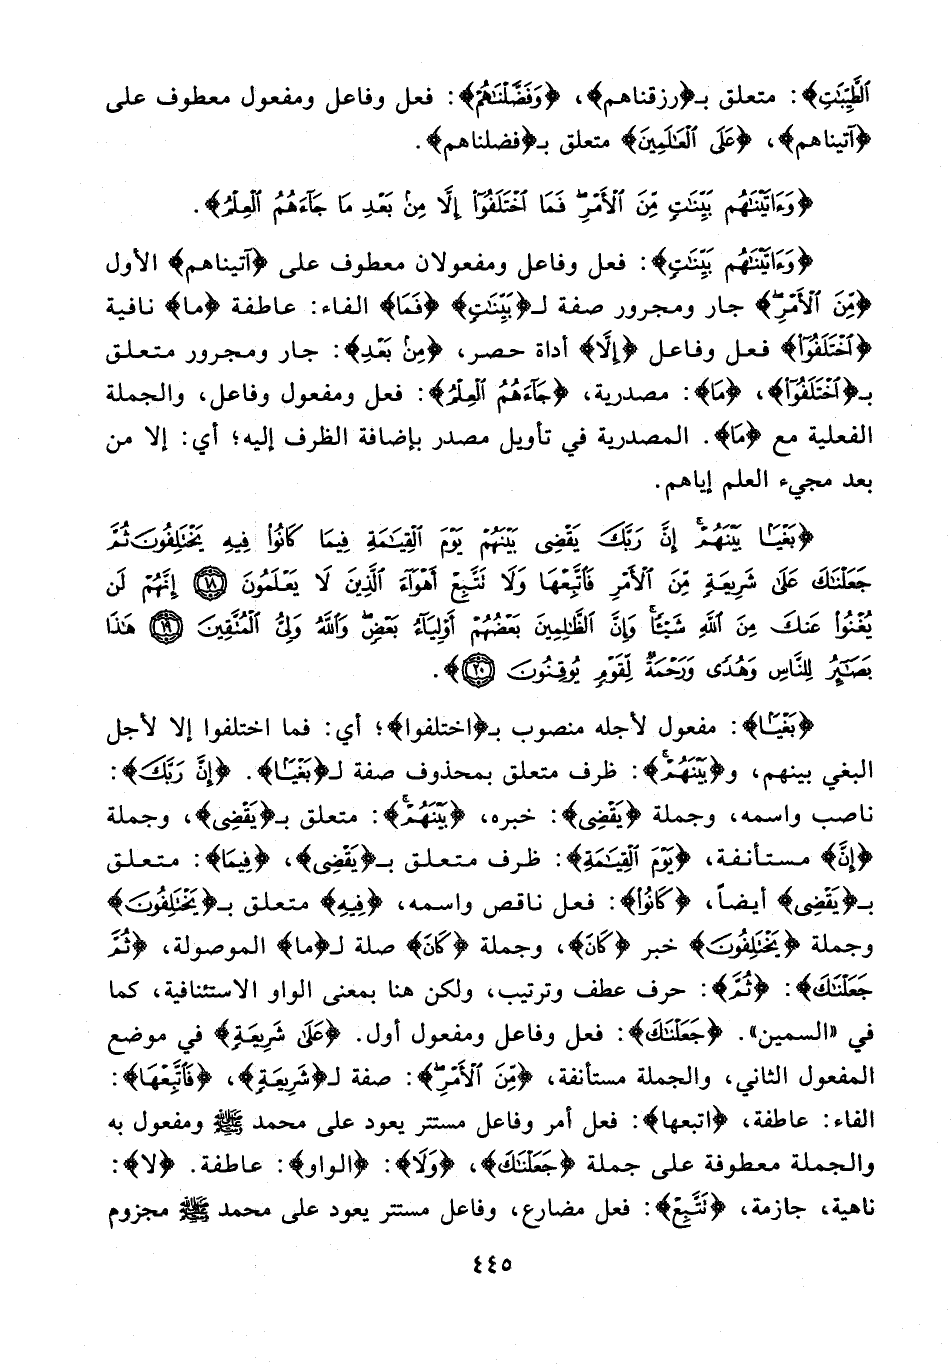 ٱلطَّيِّبَٰتِ﴾: متعلق بـ﴿رزقناهم﴾، ﴿وَفَضَّلْنَٰهُمْ﴾: فعل وفاعل ومفعول معطوف على
﴿آتيناهم﴾، ﴿عَلَى ٱلْعَٰلَمِينَ﴾ متعلق بـ﴿فضلناهم﴾.
﴿وَءَاتَيْنَٰهُم بَيِّنَٰتٍ مِّنَ ٱلْأَمْرِ ۖ فَمَا ٱخْتَلَفُوٓا۟ إِلَّا مِنۢ بَعْدِ مَا جَآءَهُمُ ٱلْعِلْمُ﴾.
﴿وَءَاتَيْنَٰهُم بَيِّنَٰتٍ﴾: فعل وفاعل ومفعولان معطوف على ﴿آتيناهم﴾ الأول
﴿مِّنَ ٱلْأَمْرِ ۖ﴾ جار ومجرور صفة لـ﴿بَيِّنَٰتٍ﴾ ﴿فَمَا﴾ الفاء: عاطفة ﴿ما﴾ نافية
﴿ٱخْتَلَفُوٓا۟﴾ فعل وفاعل ﴿إِلَّا﴾ أداة حصر، ﴿مِنۢ بَعْدِ﴾: جار ومجرور متعلق
بـ﴿ٱخْتَلَفُوٓا۟﴾، ﴿مَا﴾: مصدرية، ﴿جَآءَهُمُ ٱلْعِلْمُ﴾: فعل ومفعول وفاعل، والجملة
الفعلية مع ﴿مَا﴾. المصدرية في تأويل مصدر بإضافة الظرف إليه؛ أي: إلا من
بعد مجيء العلم إياهم.
﴿بَغْيًۢا بَيْنَهُمْ ۚ إِنَّ رَبَّكَ يَقْضِى بَيْنَهُمْ يَوْمَ ٱلْقِيَٰمَةِ فِيمَا كَانُوا۟ فِيهِ يَخْتَلِفُونَ ثُمَّ
جَعَلْنَٰكَ عَلَىٰ شَرِيعَةٍ مِّنَ ٱلْأَمْرِ فَٱتَّبِعْهَا وَلَا تَتَّبِعْ أَهْوَآءَ ٱلَّذِينَ لَا يَعْلَمُونَ ١٨ إِنَّهُمْ لَن
يُغْنُوا۟ عَنكَ مِنَ ٱللَّهِ شَيْـًٔا ۚ وَإِنَّ ٱلظَّٰلِمِينَ بَعْضُهُمْ أَوْلِيَآءُ بَعْضٍ ۖ وَٱللَّهُ وَلِىُّ ٱلْمُتَّقِينَ ١٩ هَٰذَا
بَصَٰٓئِرُ لِلنَّاسِ وَهُدًى وَرَحْمَةٌ لِّقَوْمٍ يُوقِنُونَ ٢٠﴾.
﴿بَغْيًۢا﴾: مفعول لأجله منصوب بـ﴿اختلفوا﴾؛ أي: فما اختلفوا إلا لأجل
البغي بينهم، و﴿بَيْنَهُمْ ۚ﴾: ظرف متعلق بمحذوف صفة لـ﴿بَغْيًۢا﴾. ﴿إِنَّ رَبَّكَ﴾:
ناصب واسمه، وجملة ﴿يَقْضِى﴾: خبره، ﴿بَيْنَهُمْ ۚ﴾: متعلق بـ﴿يَقْضِى﴾، وجملة
﴿إِنَّ﴾ مستأنفة، ﴿يَوْمَ ٱلْقِيَٰمَةِ﴾: ظرف متعلق بـ﴿يَقْضِى﴾، ﴿فِيمَا﴾: متعلق
بـ﴿يَقْضِى﴾ أيضاً، ﴿كَانُوا۟﴾: فعل ناقص واسمه، ﴿فِيهِ﴾ متعلق بـ﴿يَخْتَلِفُونَ﴾
وجملة ﴿يَخْتَلِفُونَ﴾ خبر ﴿كَانَ﴾، وجملة ﴿كَانَ﴾ صلة لـ﴿ما﴾ الموصولة، ﴿ثُمَّ
جَعَلْنَٰكَ﴾: ﴿ثُمَّ﴾: حرف عطف وترتيب، ولكن هنا بمعنى الواو الاستئنافية، كما
في «السمين». ﴿جَعَلْنَٰكَ﴾: فعل وفاعل ومفعول أول. ﴿عَلَىٰ شَرِيعَةٍ﴾ في موضع
المفعول الثاني، والجملة مستأنفة، ﴿مِّنَ ٱلْأَمْرِ ۖ﴾: صفة لـ﴿شَرِيعَةٍ﴾، ﴿فَٱتَّبِعْهَا﴾:
الفاء: عاطفة، ﴿اتبعها﴾: فعل أمر وفاعل مستتر يعود على محمد ﷺ ومفعول به
والجملة معطوفة على جملة ﴿جَعَلْنَٰكَ﴾، ﴿وَلَا﴾: ﴿الواو﴾: عاطفة. ﴿لا﴾:
ناهية، جازمة، ﴿تَتَّبِعْ﴾: فعل مضارع، وفاعل مستتر يعود على محمد ﷺ مجزوم
٤٤٥